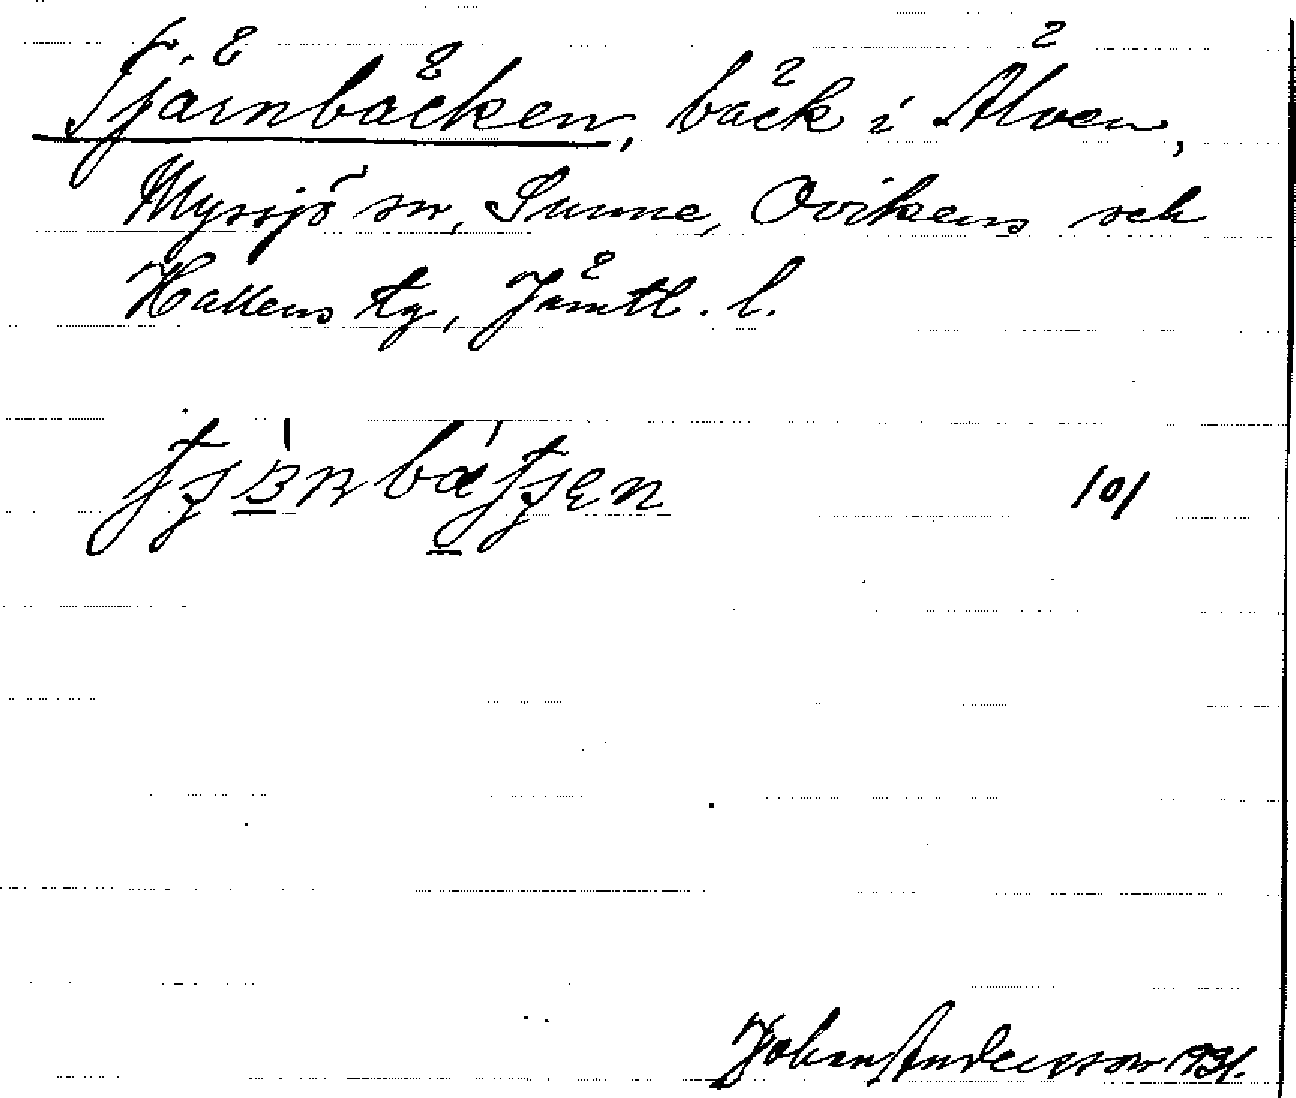 Tjärnbäcken, bäck i Älven,
Myssjö sn, Sunne, Ovikens och
Hallens tg, Jämtl. l.
101
Johan Andersson 1931.